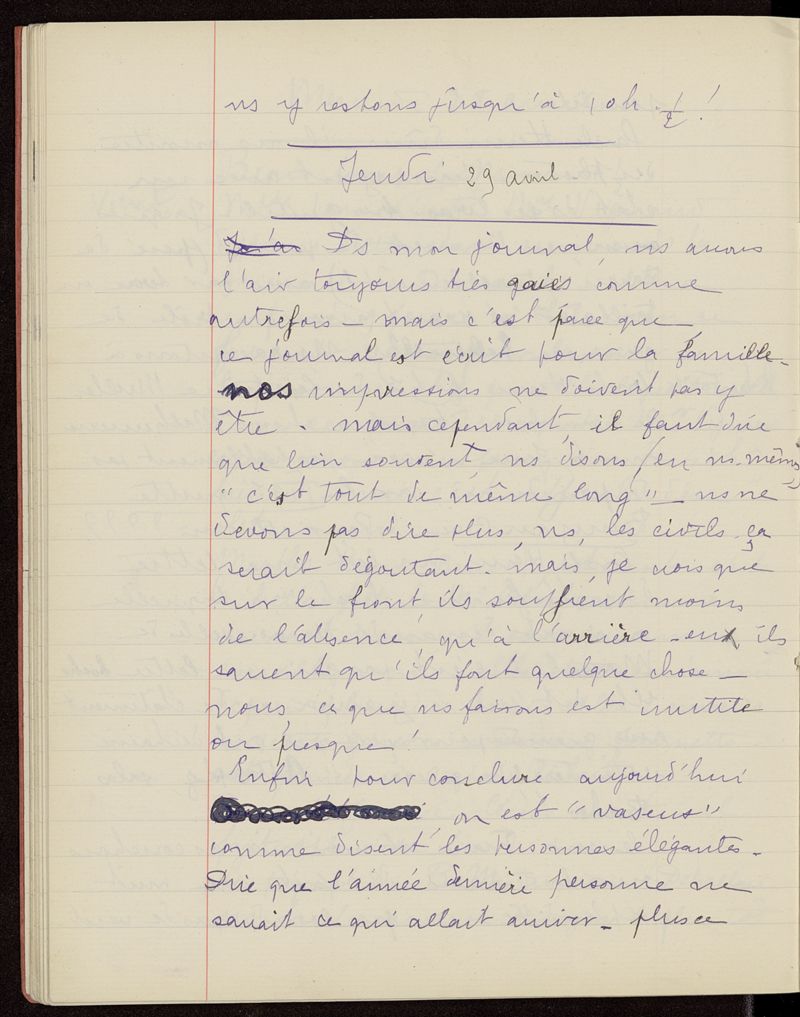 ns y restons jusqu'à 10h. 1/2 !
Jeudi 29 avril.
J'ai Ds mon journal, ns avons
l'air toujours très gaies comme
autrefois – mais c'est parce que
ce journal est écrit pour la famille –
nos impressions ne doivent pas y
être. mais cependant, il faut dire
que bien souvent, ns disons (en ns-mêmes)
"c'est tout de même long" – ns ne
devons pas dire plus, ns, les civils ça
serait dégoutant. mais, je crois que
sur le front, ils souffrent moins
de l'absence, qu'à l'arrière – eux ils
savent qu'ils font quelque chose –
nous, ce que ns faisons est inutile
ou presque !
Enfin pour conclure aujourd'hui
on est "vaseux"
comme disent les personnes élégantes –
Dire que l'année dernière personne ne
savait ce qui allait arriver – plus ce